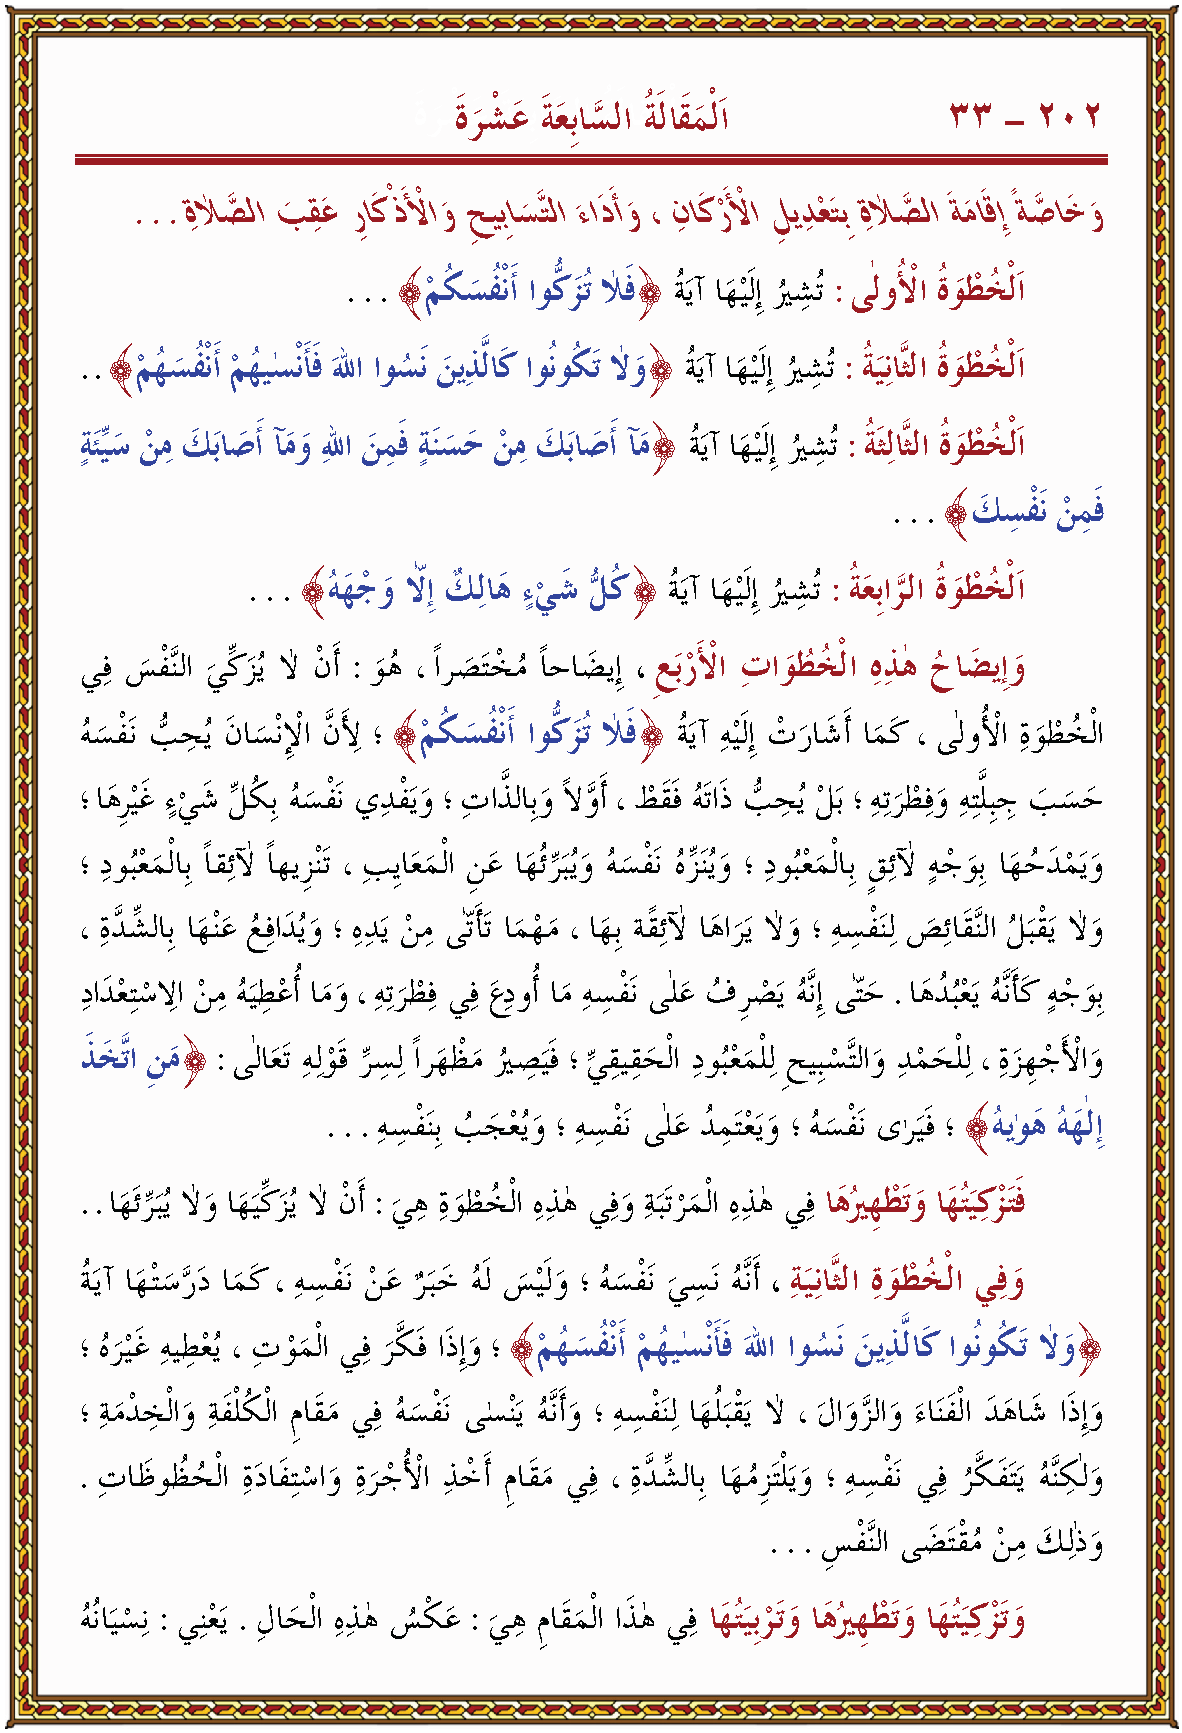 ٢٠٢ ـ ٣٣ اَلْمَقَالَةُ السَّابِعَةَ عَشْرَةَ
وَخَاصَّةً إِقَامَةَ الصَّلاٰةِ بِتَعْدِيلِ الْأَرْكَانِ ، وَأَدَاءَ التَّسَابِيحِ وَالْأَذْكَارِ عَقِبَ الصَّلاٰةِ . . .
اَلْخُطْوَةُ الْأُولٰى : تُشِيرُ إِلَيْهَا آيَةُ ﴿فَلاٰ تُزَكُّوا أَنْفُسَكُمْ﴾ . . .
اَلْخُطْوَةُ الثَّانِيَةُ : تُشِيرُ إِلَيْهَا آيَةُ ﴿وَلاٰ تَكُونُوا كَالَّذِينَ نَسُوا اللهَ فَأَنْسٰيهُمْ أَنْفُسَهُمْ﴾ . .
اَلْخُطْوَةُ الثَّالِثَةُ : تُشِيرُ إِلَيْهَا آيَةُ ﴿مَآ أَصَابَكَ مِنْ حَسَنَةٍ فَمِنَ اللهِ وَمَآ أَصَابَكَ مِنْ سَيِّئَةٍ
فَمِنْ نَفْسِكَ﴾ . . .
اَلْخُطْوَةُ الرَّابِعَةُ : تُشِيرُ إِلَيْهَا آيَةُ ﴿كُلُّ شَيْءٍ هَالِكٌ اِلّاَ وَجْهَهُ﴾ . . .
وَإِيضَاحُ هٰذِهِ الْخُطُوَاتِ الْأَرْبَعِ ، إِيضَاحاً مُخْتَصَراً ، هُوَ : أَنْ لاٰ يُزَكِّيَ النَّفْسَ فِي
الْخُطْوَةِ الْأُولٰى ، كَمَا أَشَارَتْ إِلَيْهِ آيَةُ ﴿فَلاٰ تُزَكُّوا أَنْفُسَكُمْ﴾ ؛ لِأَنَّ الْإِنْسَانَ يُحِبُّ نَفْسَهُ
حَسَبَ جِبِلَّتِهِ وَفِطْرَتِهِ ؛ بَلْ يُحِبُّ ذَاتَهُ فَقَطْ ، أَوَّلاً وَبِالذَّاتِ ؛ وَيَفْدِي نَفْسَهُ بِكُلِّ شَيْءٍ غَيْرِهَا ؛
وَيَمْدَحُهَا بِوَجْهٍ لاٰئِقٍ بِالْمَعْبُودِ ؛ وَيُنَزِّهُ نَفْسَهُ وَيُبَرِّئُهَا عَنِ الْمَعَايِبِ ، تَنْزِيهاً لاٰئِقاً بِالْمَعْبُودِ ؛
وَلاٰ يَقْبَلُ النَّقَائِصَ لِنَفْسِهِ ؛ وَلاٰ يَرَاهَا لاٰئِقَةً بِهَا ، مَهْمَا تَأَتّٰى مِنْ يَدِهِ ؛ وَيُدَافِعُ عَنْهَا بِالشِّدَّةِ ،
بِوَجْهٍ كَأَنَّهُ يَعْبُدُهَا . حَتّٰى إِنَّهُ يَصْرِفُ عَلٰى نَفْسِهِ مَا أُودِعَ فِي فِطْرَتِهِ ، وَمَا أُعْطِيَهُ مِنْ الِاسْتِعْدَادِ
وَالْأَجْهِزَةِ ، لِلْحَمْدِ وَالتَّسْبِيحِ لِلْمَعْبُودِ الْحَقِيقِيِّ ؛ فَيَصِيرُ مَظْهَراً لِسِرِّ قَوْلِهِ تَعَالٰى : ﴿مَنِ اتَّخَذَ
إِلٰهَهُ هَوٰيهُ﴾ ؛ فَيَرٰى نَفْسَهُ ؛ وَيَعْتَمِدُ عَلٰى نَفْسِهِ ؛ وَيُعْجَبُ بِنَفْسِهِ . . .
فَتَزْكِيَتُهَا وَتَطْهِيرُهَا فِي هٰذِهِ الْمَرْتَبَةِ وَفِي هٰذِهِ الْخُطْوَةِ هِيَ : أَنْ لاٰ يُزَكِّيَهَا وَلاٰ يُبَرِّئَهَا . .
وَفِي الْخُطْوَةِ الثَّانِيَةِ ، أَنَّهُ نَسِيَ نَفْسَهُ ؛ وَلَيْسَ لَهُ خَبَرٌ عَنْ نَفْسِهِ ، كَمَا دَرَّسَتْهَا آيَةُ
﴿وَلاٰ تَكُونُوا كَالَّذِينَ نَسُوا اللهَ فَأَنْسٰيهُمْ أَنْفُسَهُمْ﴾ ؛ وَإِذَا فَكَّرَ فِي الْمَوْتِ ، يُعْطِيهِ غَيْرَهُ ؛
وَإِذَا شَاهَدَ الْفَنَاءَ وَالزَّوَالَ ، لاٰ يَقْبَلُهَا لِنَفْسِهِ ؛ وَأَنَّهُ يَنْسٰى نَفْسَهُ فِي مَقَامِ الْكُلْفَةِ وَالْخِدْمَةِ ؛
وَلٰكِنَّهُ يَتَفَكَّرُ فِي نَفْسِهِ ؛ وَيَلْتَزِمُهَا بِالشِّدَّةِ ، فِي مَقَامِ أَخْذِ الْأُجْرَةِ وَاسْتِفَادَةِ الْحُظُوظَاتِ .
وَذٰلِكَ مِنْ مُقْتَضَى النَّفْسِ . . .
وَتَزْكِيَتُهَا وَتَطْهِيرُهَا وَتَرْبِيَتُهَا فِي هٰذَا الْمَقَامِ هِيَ : عَكْسُ هٰذِهِ الْحَالِ . يَعْنِي : نِسْيَانُهُ